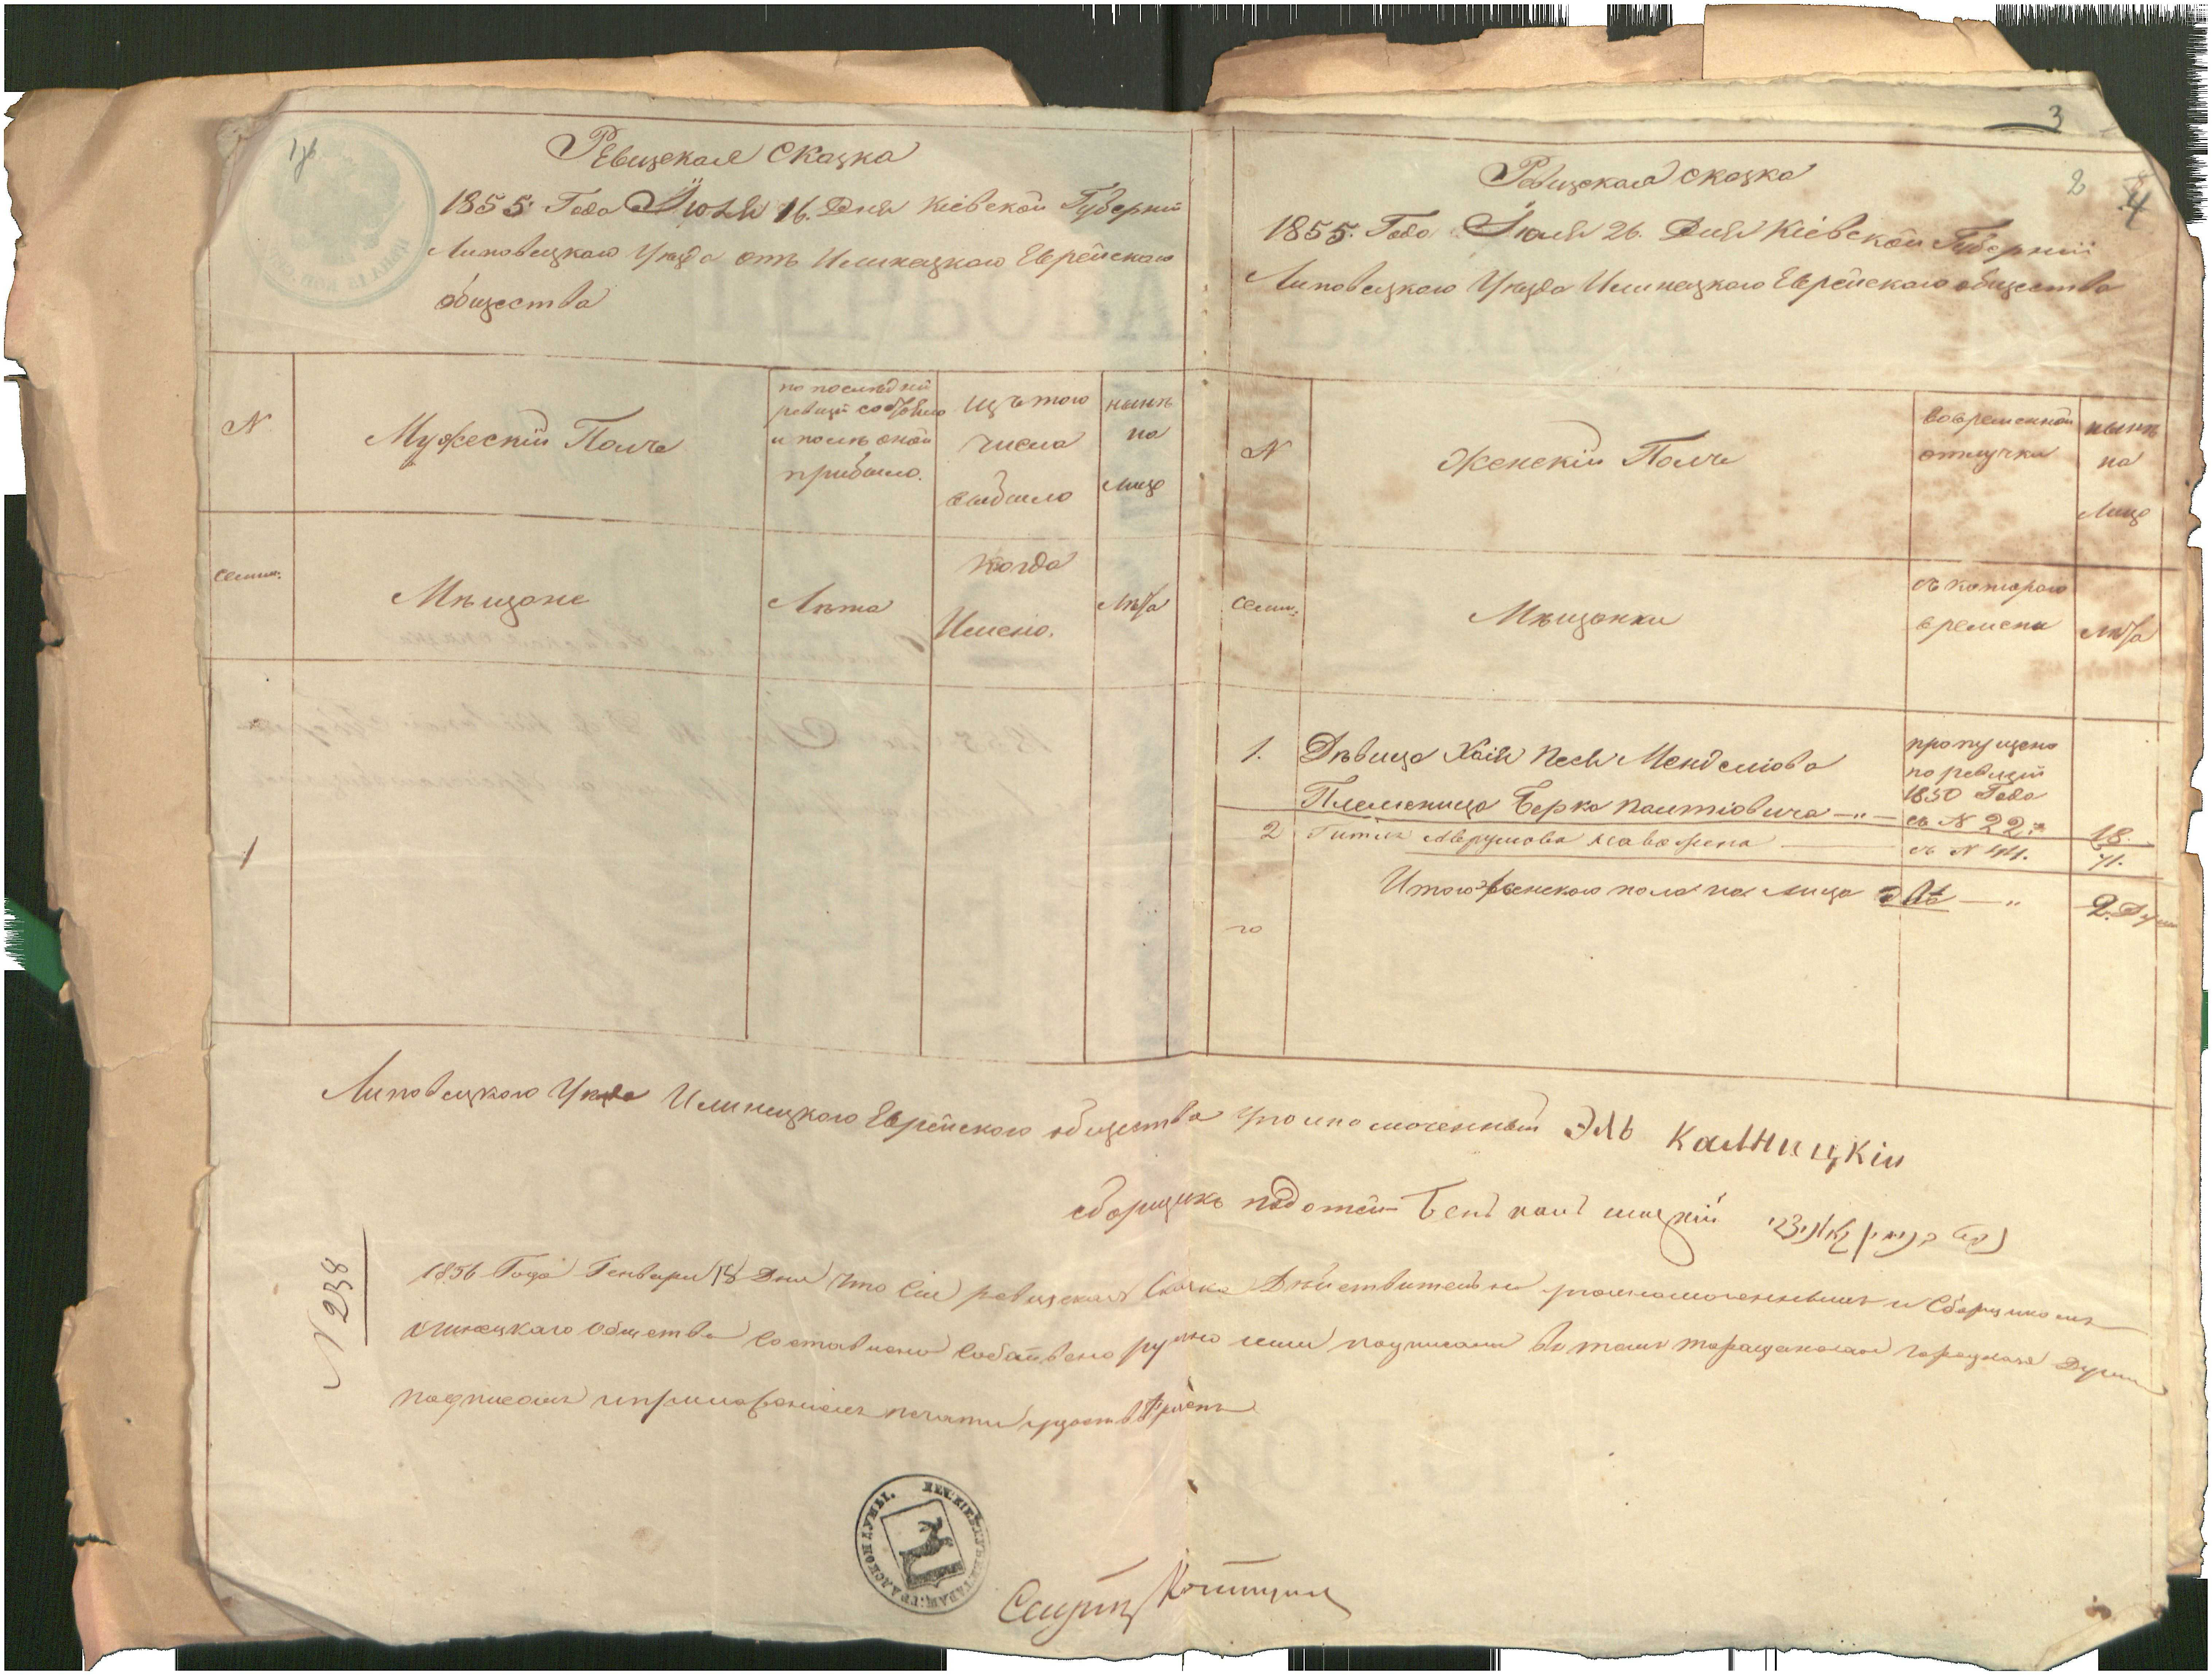 Ревизская Сказка
1855 Года Июля 16. Дня Кіевской Губерніи
Липовецкаго Уезда отъ Илинецкаго Еврейскаго
общества
N
Мужескій Полъ
по последней
ревизіи состояло
и после оной
прибыло.
изъ того
числа
выбыло
ныне
на
лицо
семьи.
Мещане
Лета
Когда
Имено.
Лета
1
3
2
4
Ревизская сказка
1855. Года Июля 26. Дня Кіевской Губерніи
Липовецкаго Уезда Илинецкаго Еврейскаго общества
N
Женскій Полъ
во временной
отлучке
ныне
на
Лицо
Семьи.
Мещанки
съ котораго
времени
Лета
1. Девица Хая Песя Менделіова пропущена
по ревизіи
1850 Года
Племеница Берка съ N 22. 18.
2 Аврумова жена съ N 44. 71.
Итого женского пола на лицо две 2. Души
Липовецкаго Уезда Илинецкаго Еврейскаго общества уполномоченный Эль Калницкій
сборщикъ податей Бен
N 238
1856 Года Генваря 18 Дня Что Сія ревизская Сказка Действительно уполномоченнымъ и Сборщикомъ
Илинецкаго Общества составлена Собственно ручно ими подписана въ томъ Таращанская городская Дума
подписомъ и приложеніемъ печати удостоверяетъ